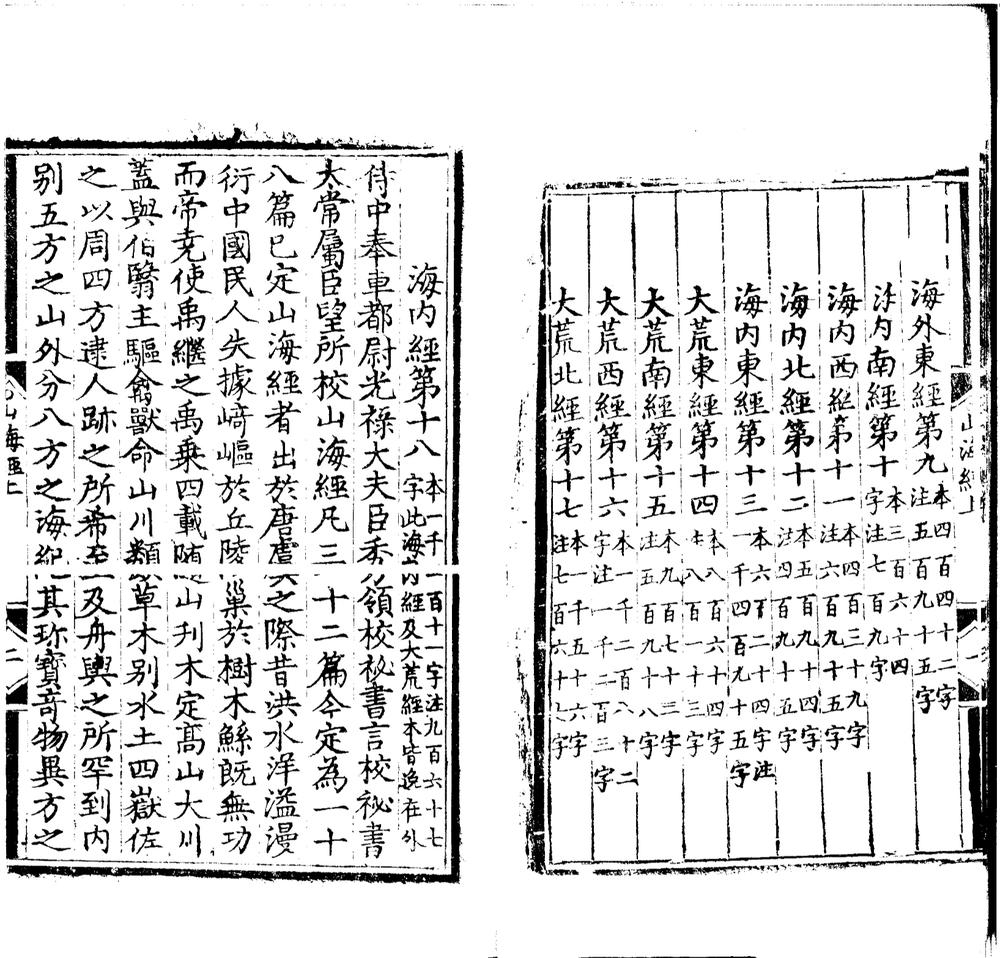 海外東經第九 本四百四十二字注五百九十五字
海內南經第十 本三百六十四字注七百九字
海內西經第十一 本四百三十九字注六百九十五字
海內北經第十二 本五百九十四字注四百九十五字
海內東經第十三 本六百二十四字注一千四百九十五字
大荒東經第十四 本八百六十四字
大荒南經第十五 本九百七十三字注五百九十八字
大荒西經第十六 本一千二百八十二字注一千二百三字
大荒北經第十七 本一千五十六字注七百六十字
山海經上
一
海內經第十八 本一千一百十一字注九百六十七字此海內經及大荒經本皆逸在外
侍中奉車都尉光祿大夫臣秀領校祕書言校祕書
太常屬臣望所校山海經凡三十二篇今定為一十
八篇已定山海經者出於唐虞之際昔洪水洋溢漫
衍中國民人失據崎嶇於丘陵巢於樹木鯀既無功
而帝堯使禹繼之禹乘四載随山刋木定高山大川
蓋與伯翳主驅禽獸命山川類草木別水土四嶽佐
之以周四方逮人跡之所希至及舟輿之所罕到內
別五方之山外分八方之海紀其珎寶竒物異方之
山海經上
二